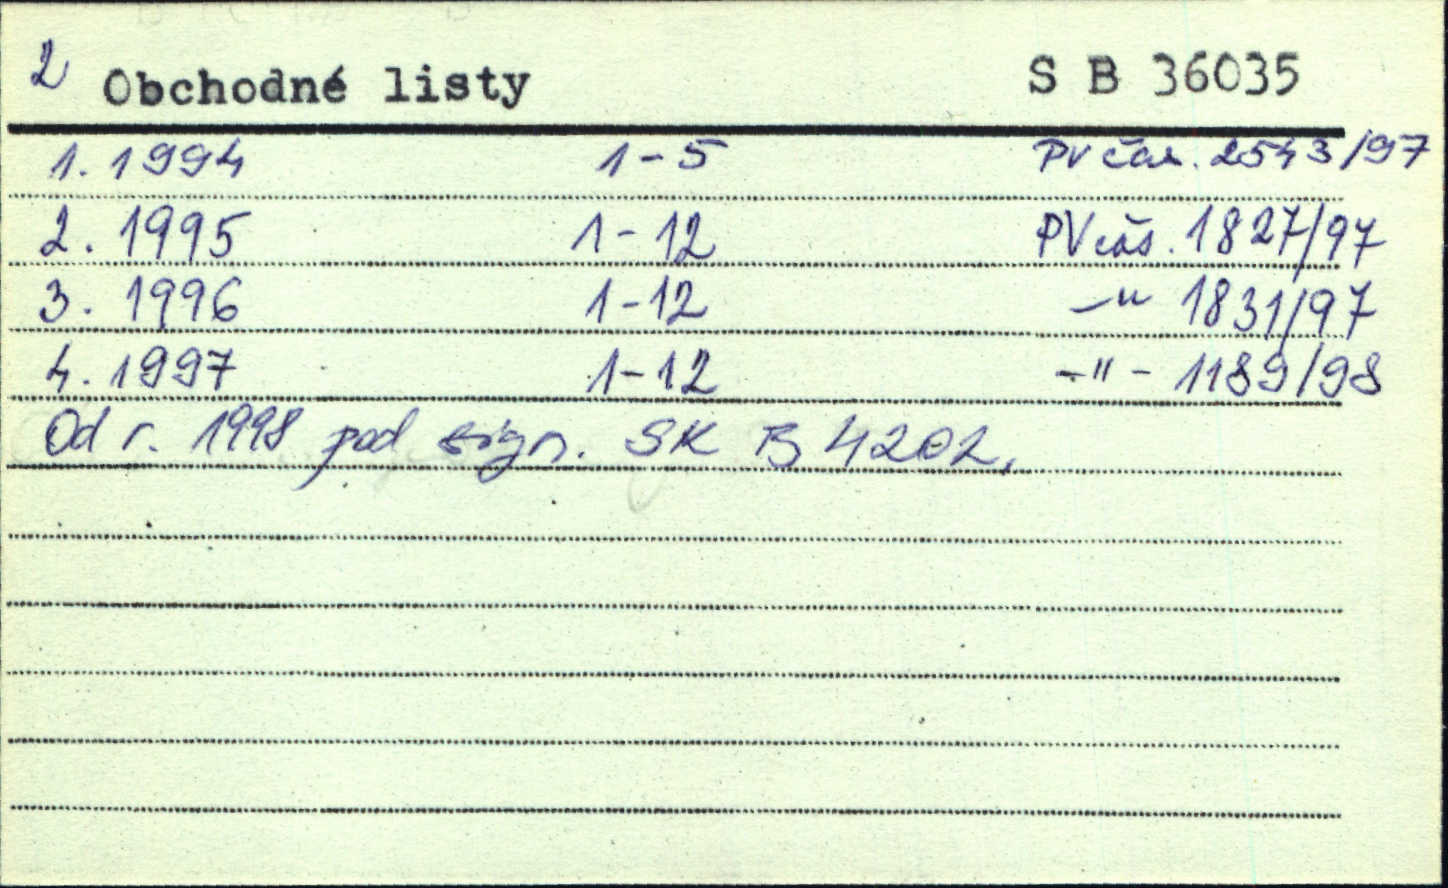 2 Obchodné listy S B 36035
1. 1994 1-5 PV čas. 2543/97
2. 1995 1-12 PV čas. 1827/97
3. 1996 1-12 -" 1831/97
4. 1997 1-12 -"- 1189/98
Od r. 1998 pod sign. SK B 4202.